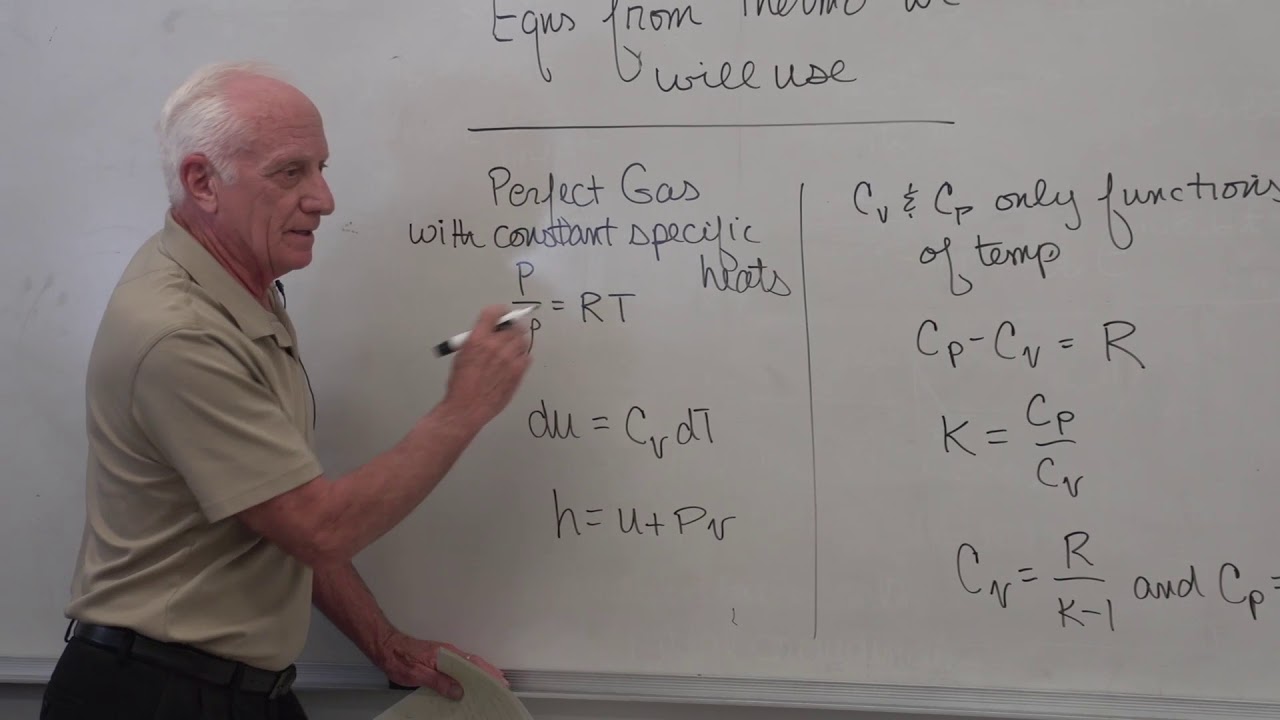 Eqns from Thermo we
will use
Perfect Gas
with constant specific
heats
P/ρ = RT
du = Cv dT
h = u + Pv
Cv & Cp only functions
of temp
Cp - Cv = R
K = Cp/Cv
Cv = R/K-1 and Cp =